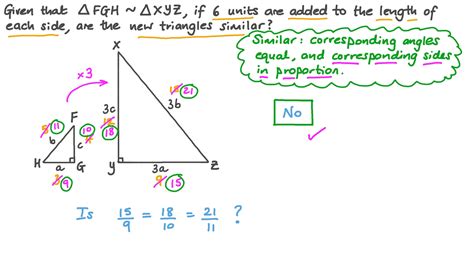 Given that △FGH ~ △XYZ, if 6 units are added to the length of
each side, are the new triangles similar?
Similar: corresponding angles
equal, and corresponding sides
in proportion.
No
×3
X
21
3b
3c
18
F
11
10
b
c
H
a
G
9
y
3a
Z
15
Is 15/9 = 18/10 = 21/11 ?